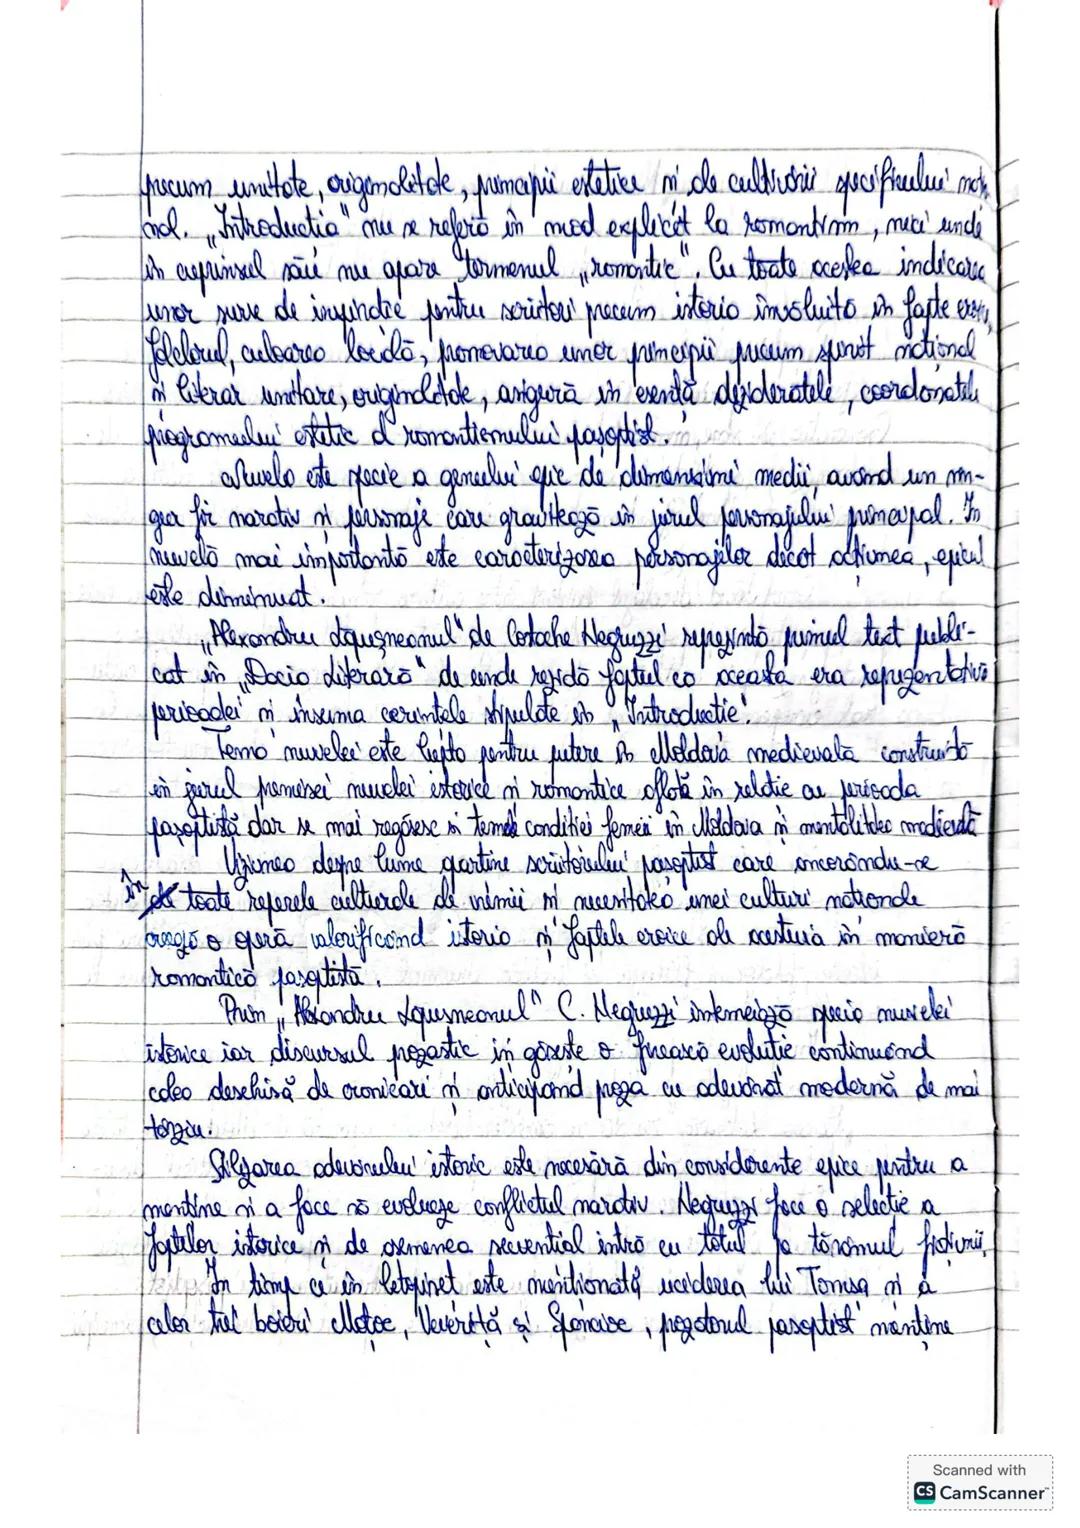 precum unitate, originalitate, principii estetice și de cultivării specificului națio
nal. „Introducția" nu se referă în mod explicit la romantism, nici unde
în cuprinsul său nu apare termenul „romantic". Cu toate acestea indicarea
unor surse de inspirație pentru scriitori precum istoria învăluită în fapte eroice,
folclorul, culoarea locală, promovarea unor principii precum spirit național
și literar unitare, originalitate, asigură în esență dezideratele, coordonatele
programului estetic al romantismului pașoptist.
Nuvela este specie a genului epic de dimensiuni medii, având un sin-
gur fir narativ și personaje care gravitează în jurul personajului principal. În
nuvelă mai importantă este caracterizarea personajilor decât acțiunea, epicul
este diminuat.
„Alexandru Lăpușneanul" de Costache Negruzzi reprezintă primul text publi-
cat în „Dacia Literară" de unde rezidă faptul că aceasta era reprezentativă
perioadei și însuma cerințele stipulate în „Introducție".
Tema nuvelei este lupta pentru putere în Moldova medievală construită
în jurul premisei nuvelei istorice și romantice aflată în relație cu perioada
pașoptistă dar se mai regăsesc și tema condiției femeii în Moldova și mentalitatea medievală
Viziunea despre lume aparține scriitorului pașoptist care ancorându-se
în toate reperele culturale ale vremii și necesitatea unei culturi naționale
creează o operă valorificând istoria și faptele eroice ale acesteia în manieră
romantică pașoptistă.
Prin „Alexandru Lăpușneanul" C. Negruzzi întemeiază specia nuvelei
istorice iar discursul prozastic își găsește o firească evoluție continuând
calea deschisă de cronicari și anticipând proza cu adevărat modernă de mai
târziu.
Stilizarea adevărului istoric este necesară din considerente epice pentru a
menține și a face să evolueze conflictul narativ. Negruzzi face o selecție a
faptelor istorice și de asemenea secvențial intră cu totul pe tărâmul ficțiunii.
În timp ce în letopiseț este menționată uciderea lui Tomșa și a
celor trei boieri Moțoc, Veveriță și Spancioc, prozatorul pașoptist menține
Scanned with
CS CamScanner